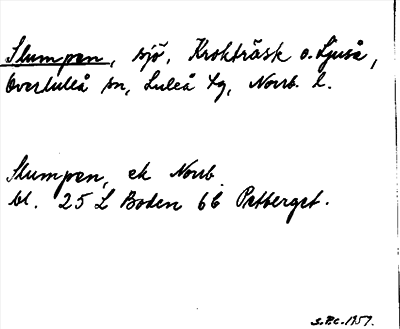 Slumpen, sjö, Krokträsk o. Ljuså,
Överluleå sn, Luleå tg, Norrb. l.
Slumpen, ek Norrb
bl. 25 L Boden 6b Petberget.
S.P.C. 1957.